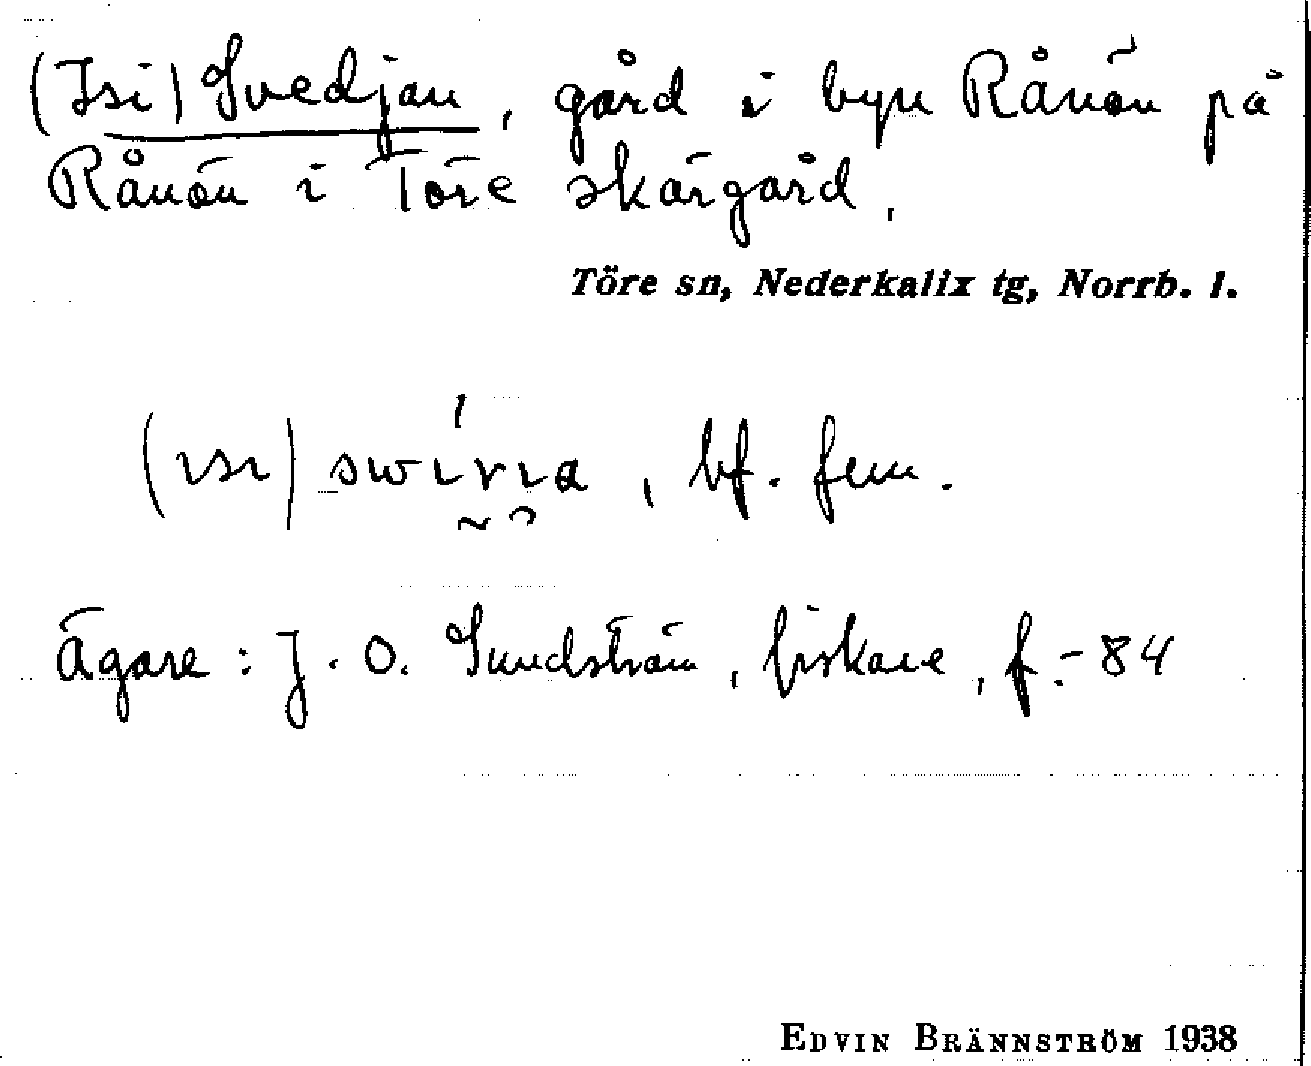 (Isi) Svedjan, gård i byn Rånön på
Rånön i Töre skärgård.
Töre sn, Nederkalix tg, Norrb. l.
(ısı) swırıa, bf. fem.
Ägare: J. O. Sundström, fiskare, f. -84
EDVIN BRÄNNSTRÖM 1938